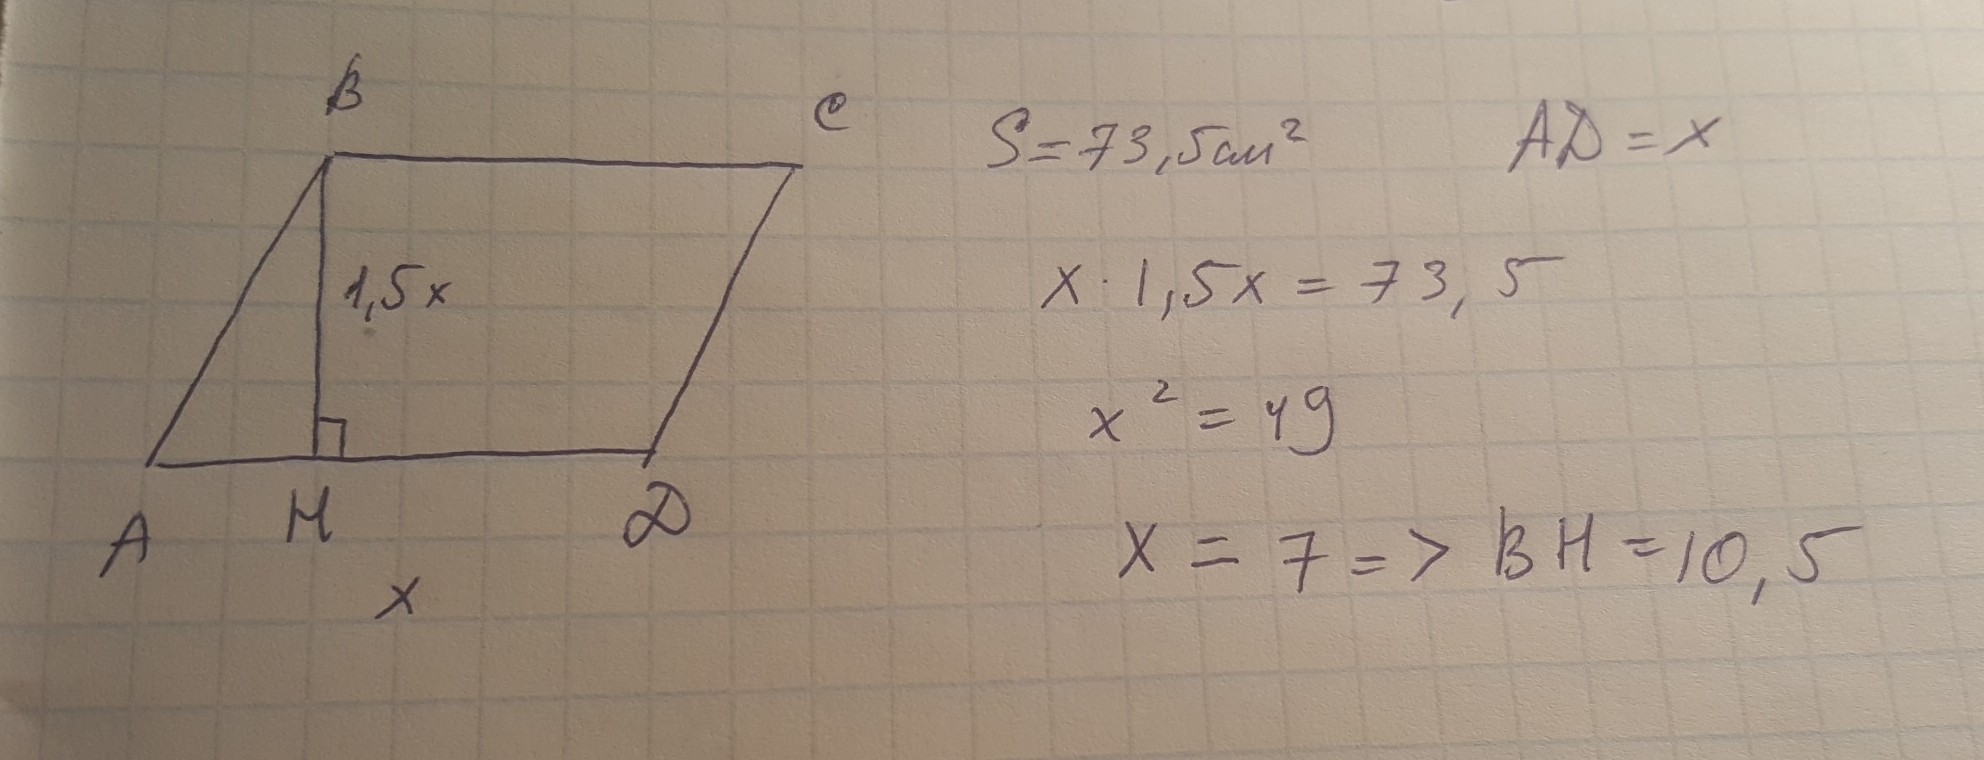 B
C
1,5x
A H D
x
S=73,5см² AD=x
x·1,5x=73,5
x²=49
x=7=>BH=10,5